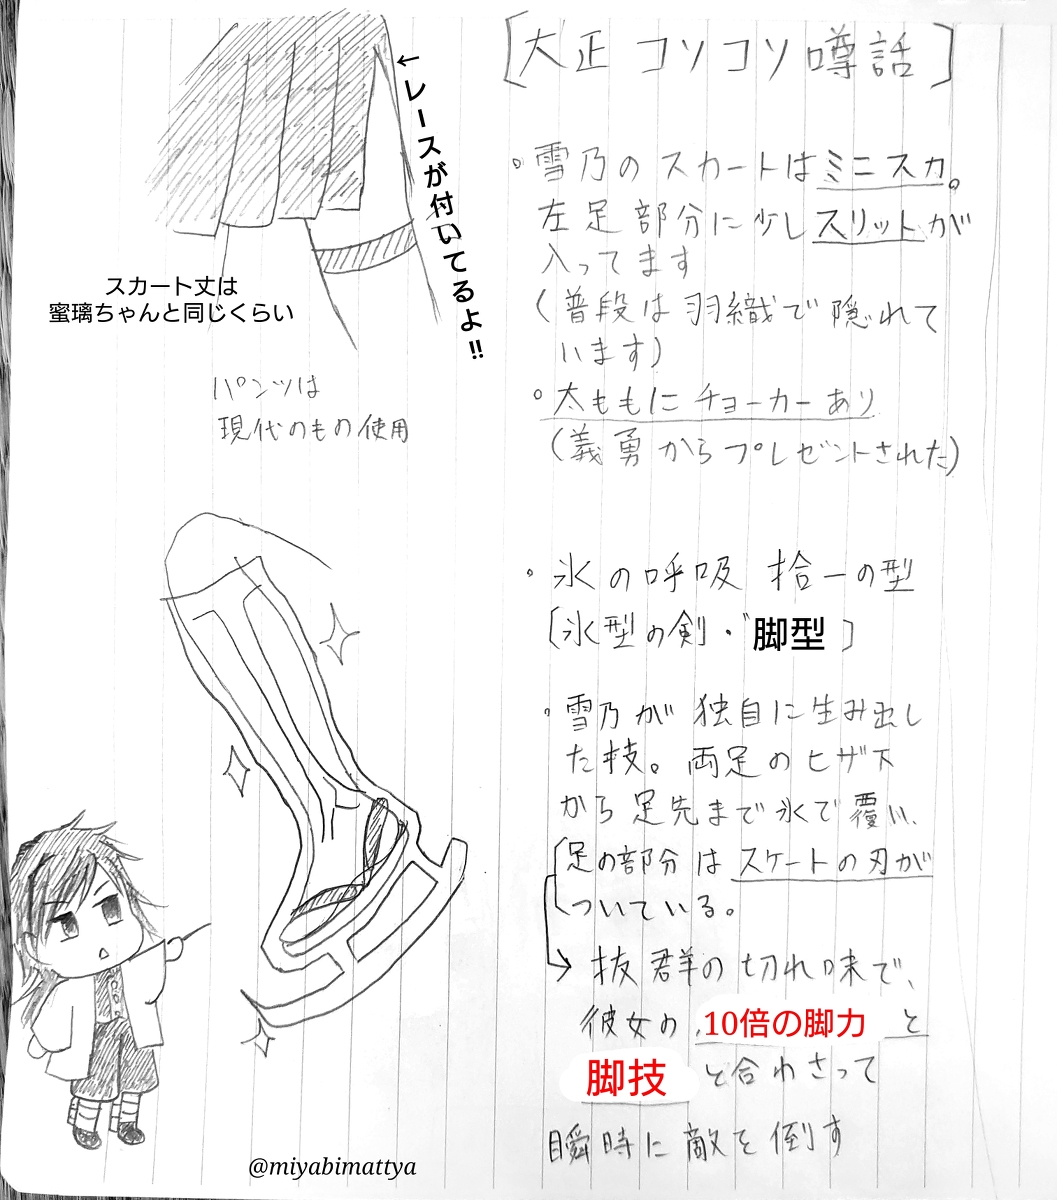 [大正コソコソ噂話]
。雪乃のスカートはミニスカ。
左足部分に少しスリットが
入ってます
(普段は羽織で隠れて
います)
。太ももにチョーカーあり
(義勇からプレゼントされた)
←レースが付いてるよ!!
スカート丈は
蜜璃ちゃんと同じくらい
パンツは
現代のもの使用
。氷の呼吸 拾一の型
[氷型の剣・脚型]
。雪乃が独自に生み出し
た技。両足のヒザ下
から足先まで氷で覆い、
足の部分はスケートの刃が
ついている。
→抜群の切れ味で、
彼女の10倍の脚力と
脚技と合わさって
瞬時に敵を倒す
@miyabimattya